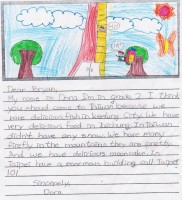 Dear Bryan,
My name is Dora. I'm in grade 2. I think
you should come to Taiwan because we
have delicious fish in keelung City. We have
very delicious food in Taichung. In Taiwan
didn't have any snow. We have many
firefly in the mountains they are pretty.
And we have delicious mooncake. In
Taipei have a enormous building call Taipei
101
Sincerely,
Dora